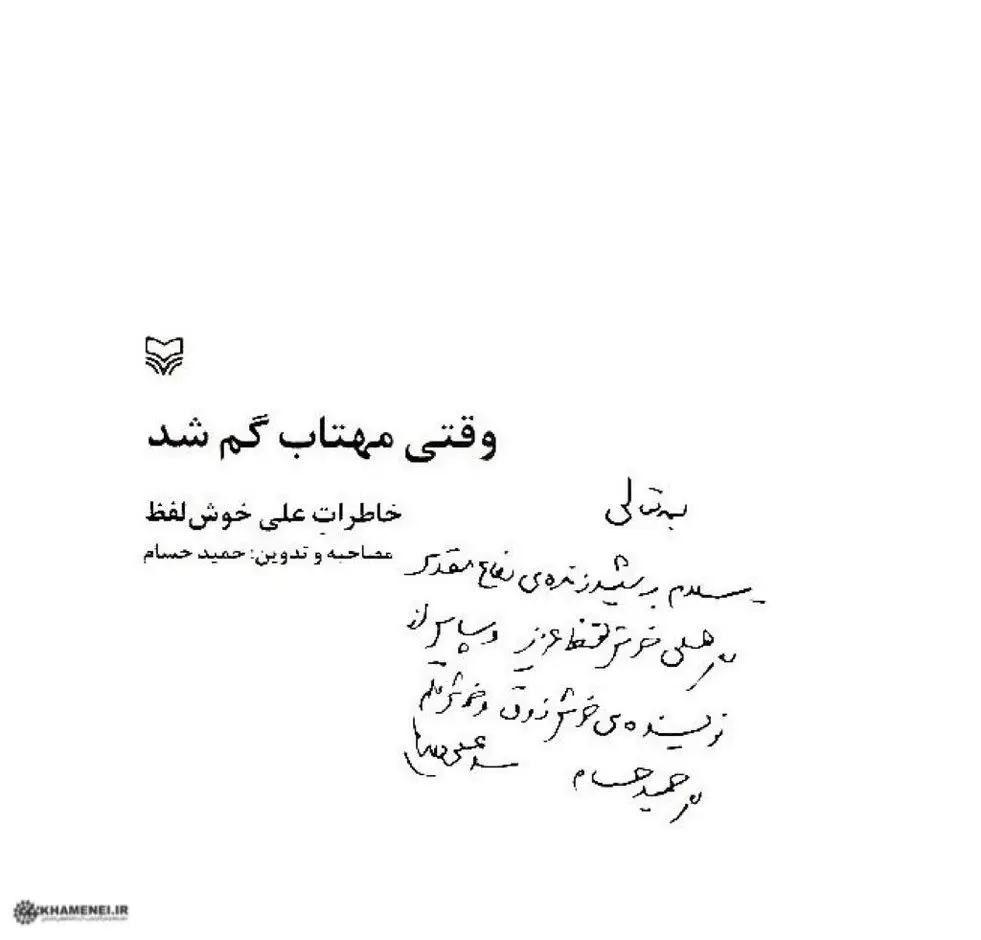 وقتی مهتاب گم شد
خاطراتِ علی خوش‌لفظ
مصاحبه و تدوین: حمید حسام
بسمه‌تعالی
سلام بر شهید زنده‌ی دفاع مقدس
علی خوش‌لفظ عزیز و سپاس از
نویسنده‌ی خوش‌ذوق و خوش‌قلم
حمید حسام
سید علی خامنه‌ای
KHAMENEI.IR